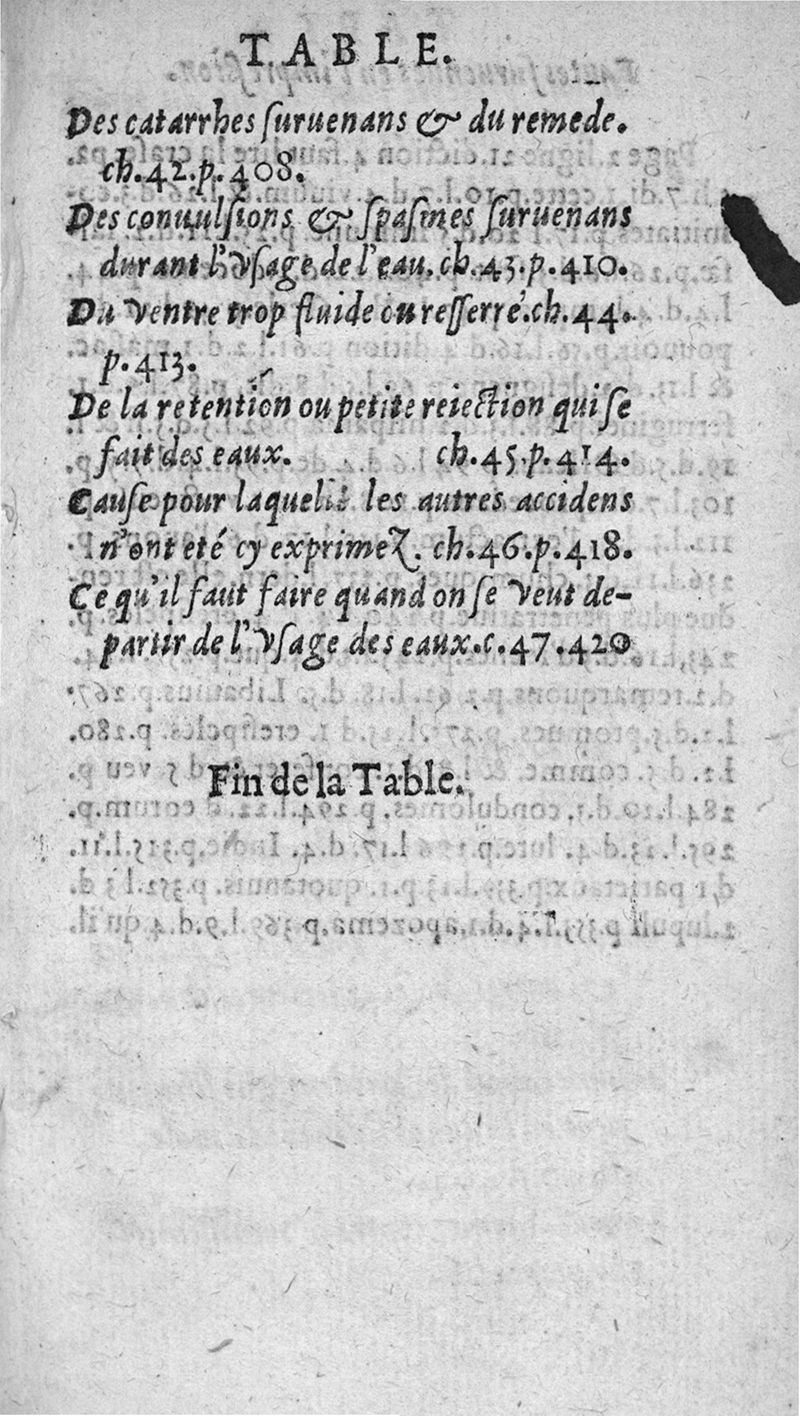 TABLE.
Des catarrhes ſuruenans & du remede.
ch.42.p.408.
Des conuulſions & ſpaſmes ſuruenans
durant l'vſage de l'eau.ch.43.p.410.
Du ventre trop fluide ou reſſerré.ch.44.
p.413.
De la retention ou petite reiection qui ſe
fait des eaux. ch.45.p.414.
Cauſe pour laquelle les autres accidens
n'ont eté cy exprimez. ch.46.p.418.
Ce qu'il faut faire quand on ſe veut de-
partir de l'vſage des eaux.c.47.420
Fin de la Table.